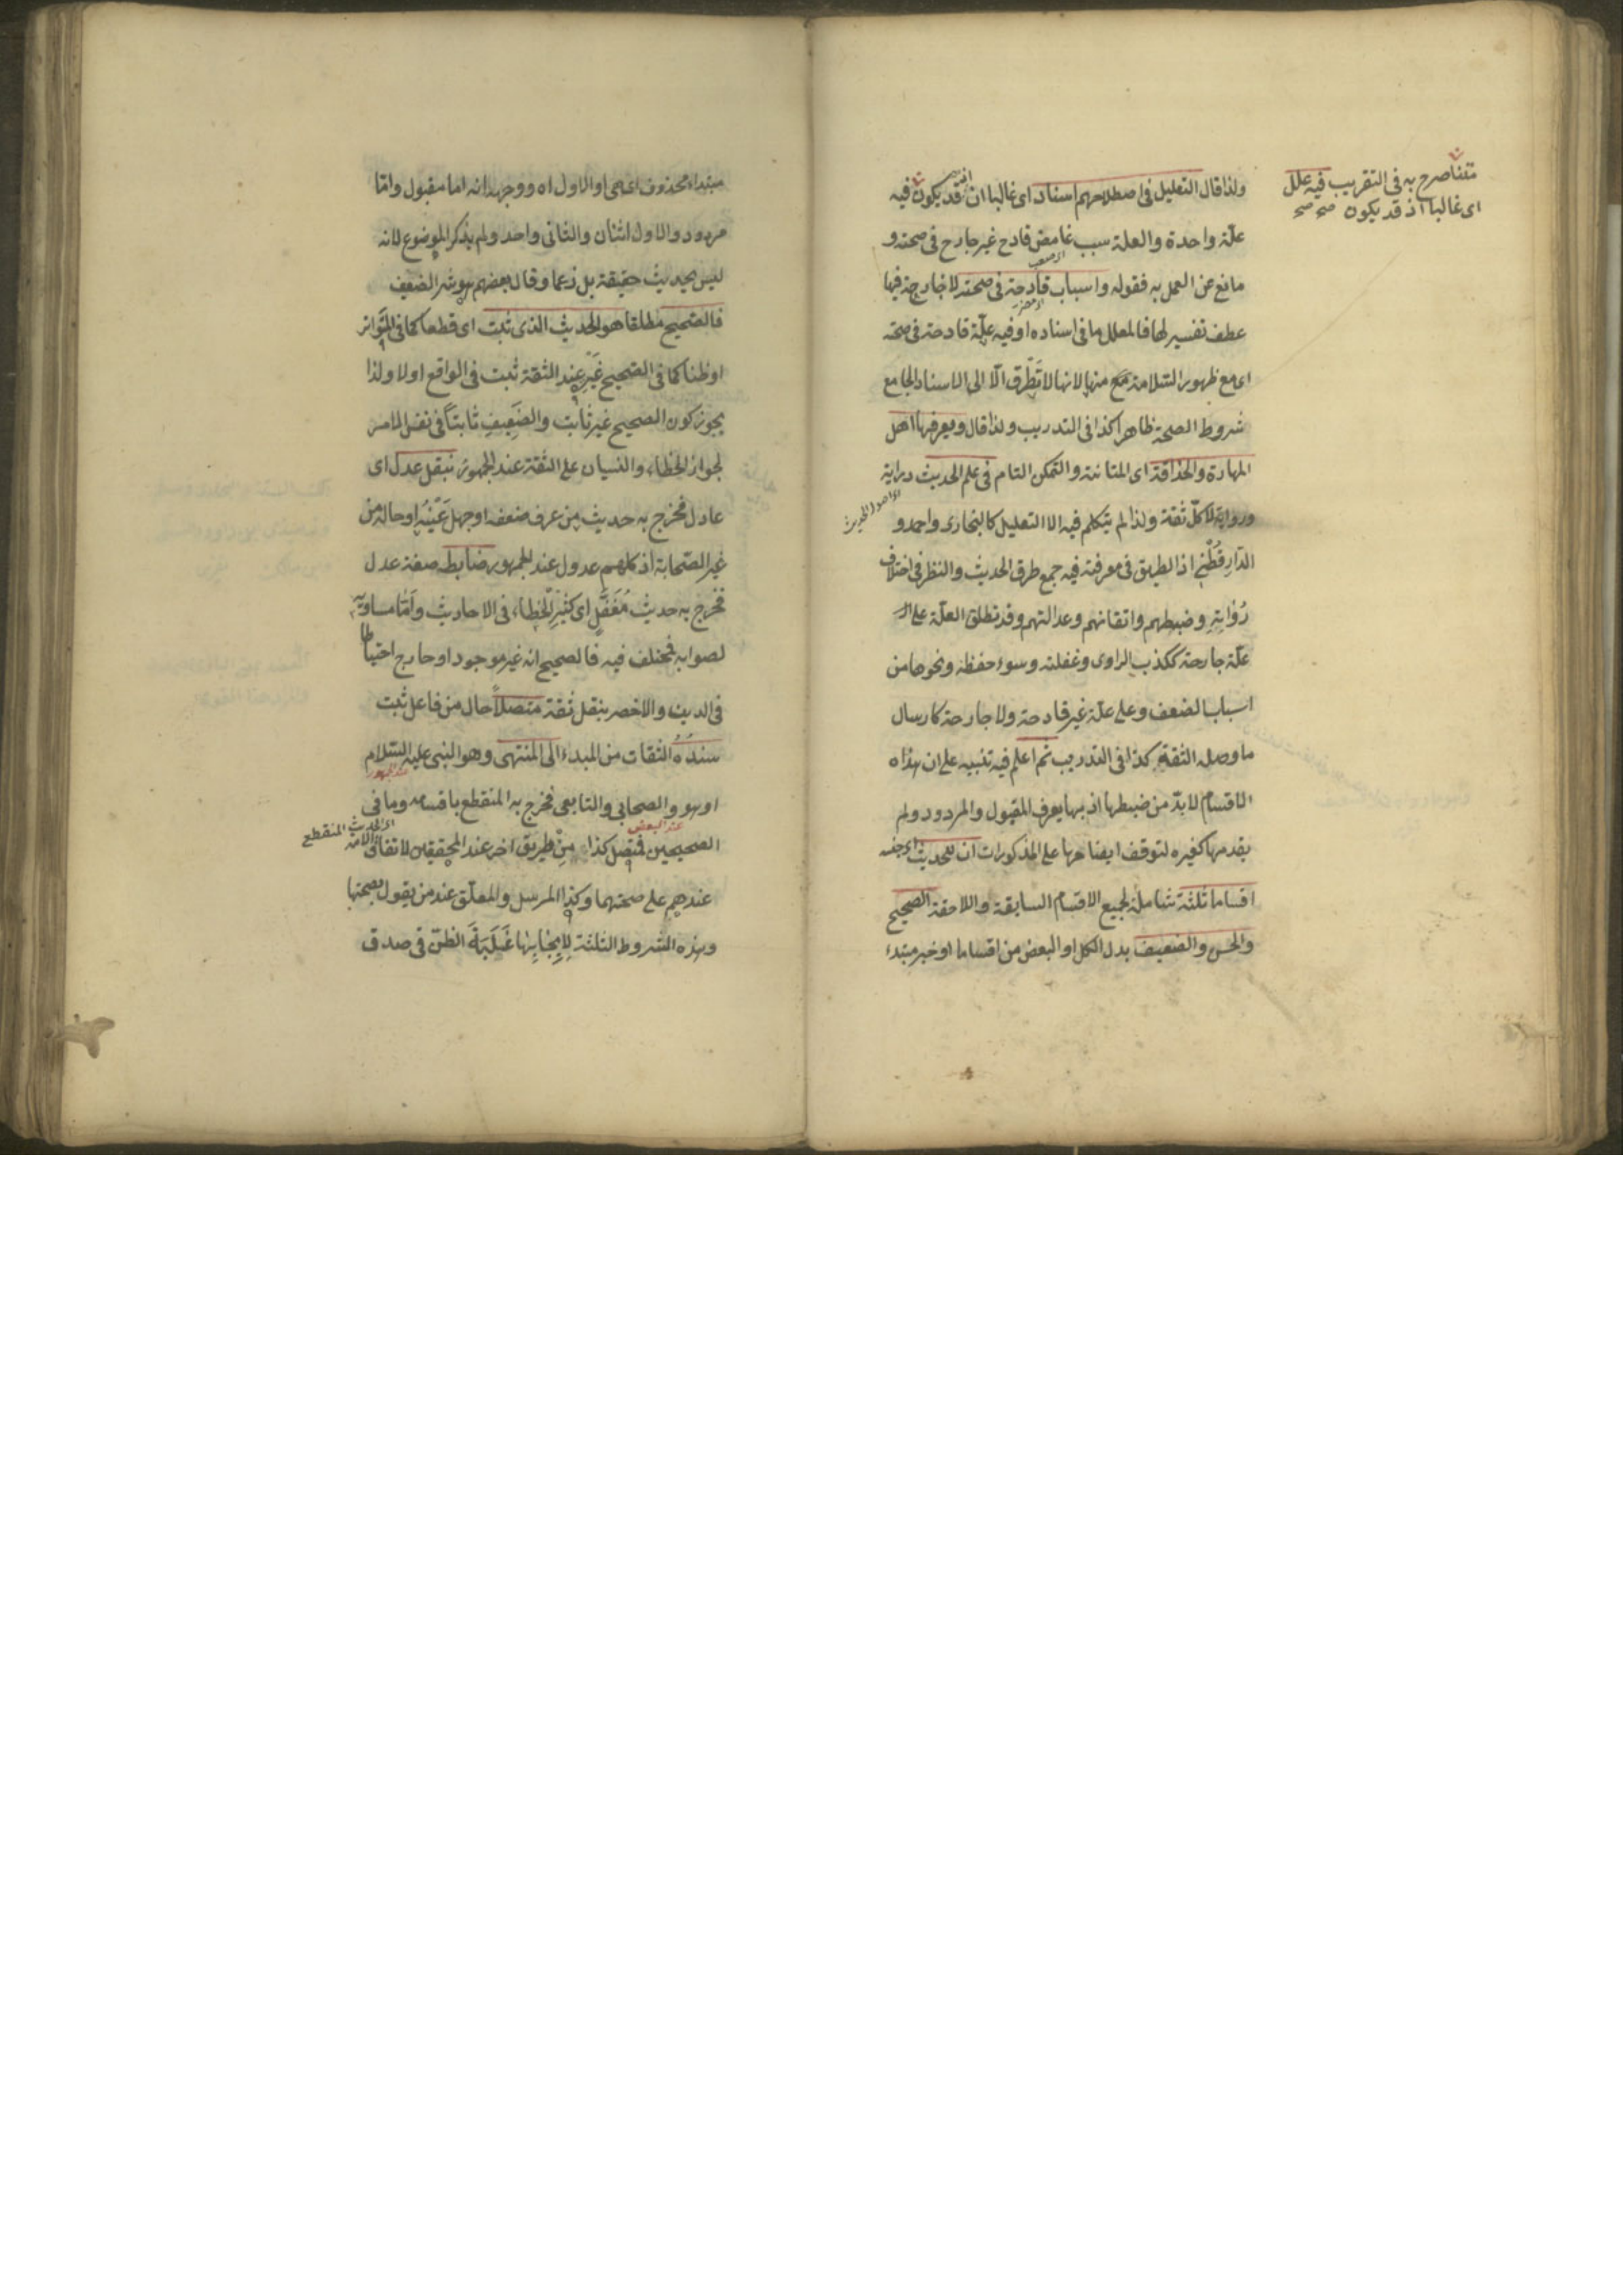 متنا صرح به فى التقريب فيه علل
اى غالبا اذ قد يكون صح صح
ولذا قال التعليل فى اصطلاحهم اسناد اى غالبا اذ قد يكون فيه
علّة واحدة والعلة سبب غامض قادح غير جارح فى صحته و
مانع عن العمل به فقوله واسباب قادحة فى صحته لا جارحة فيها
عطف تفسير لها فالمعلل ما فى اسناده او فيه علّة قادحة فى صحته
اى مع ظهور السّلامة منها لانها لا تَطَّرق الّا الى الاسناد الجامع
شروط الصحة ظاهرا كذا فى التدريب ولذا قال ويعرفها اهل
المهارة والحذاقة اى المتانة والتمكن التام فى علم الحديث دراية
اى اصول الحديث
ورواية لا كلّ ثقة ولذا لم يتكلم فيه الا التعليل كالبخارى واحمد و
الدّارقُطْنِى اذ الطريق فى معرفته فيه جمع طرق الحديث والنظر فى اختلاف
رُوَاتِهِ وضبطهم واتقانهم وعدالتهم وقد تطلق العلّة على
علّة جارحة ككذب الراوى وغفلته وسوء حفظه ونحوها من
اسباب الضعف وعلى علّة غير قادحة ولا جارحة كارسال
ما وصله الثقة كذا فى التدريب ثم اعلم فيه تنبيه على ان هذه
الاقسام لا بدّ من ضبطها اذ بها يعرف المقبول والمردود ولم
يقدمها كغيره لتوقف ايضاحها على المذكورات ان للحديث اى جنسه
اقساما ثلثة شاملة لجميع الاقسام السابقة واللاحقة الصحيح
والحسن والضعيف بدل الكل او البعض من اقساما او خبر مبتدء
مبتداء محذوف اى هى او الاول اه ووجهه انه اما مقبول واما
مردود والاول اثنان والثانى واحد ولم يذكر الموضوع لانه
ليس بحديث حقيقة بل زعما وقال بعضهم هو شر الضعيف
فالصحيح مطلقا هو الحديث الذى ثبت اى قطعا كما فى المتواتر
او ظنا كما فى الصحيح غيره عند الثقة ثبت فى الواقع او لا ولذا
يجوز كون الصحيح غير ثابت والضعيف ثابتا فى نفس الامر
لجواز الخطاء والنسيان على الثقة عند الجمهور بنقل عدل اى
عادل فخرج به حديث من عرف ضعفه او جهل عَيْنُه او حاله من
غير الصّحابة اذ كلهم عدول عند الجمهور ضابط صفة عدل
فخرج به حديث مُغَفَّلٍ اى كثير الخطاء فى الاحاديث وامّا مساويه
لصوابه فمختلف فيه فالصحيح انه غير موجود او خارج احتياطا
فى الدين والاخصر بنقل ثقة متصلاً حال من فاعل ثبت
سندُهُ الثقات من المبدء الى المنتهى وهو النبى عليه السّلام
عند الجمهور
او هو والصحابى والتابعى فخرج به المنقطع باقسامه وما فى
عند البعض
اى الحديث المنقطع
الصحيحين فمتصل كذا من طريق اخر عند المحققين لاتفاق الامة
عندهم على صحتهما وكذا المرسل والمعلّق عند من يقول بصحتها
وهذه الشروط الثلثة لايجابها غَلَبَةَ الظنّ فى صدق